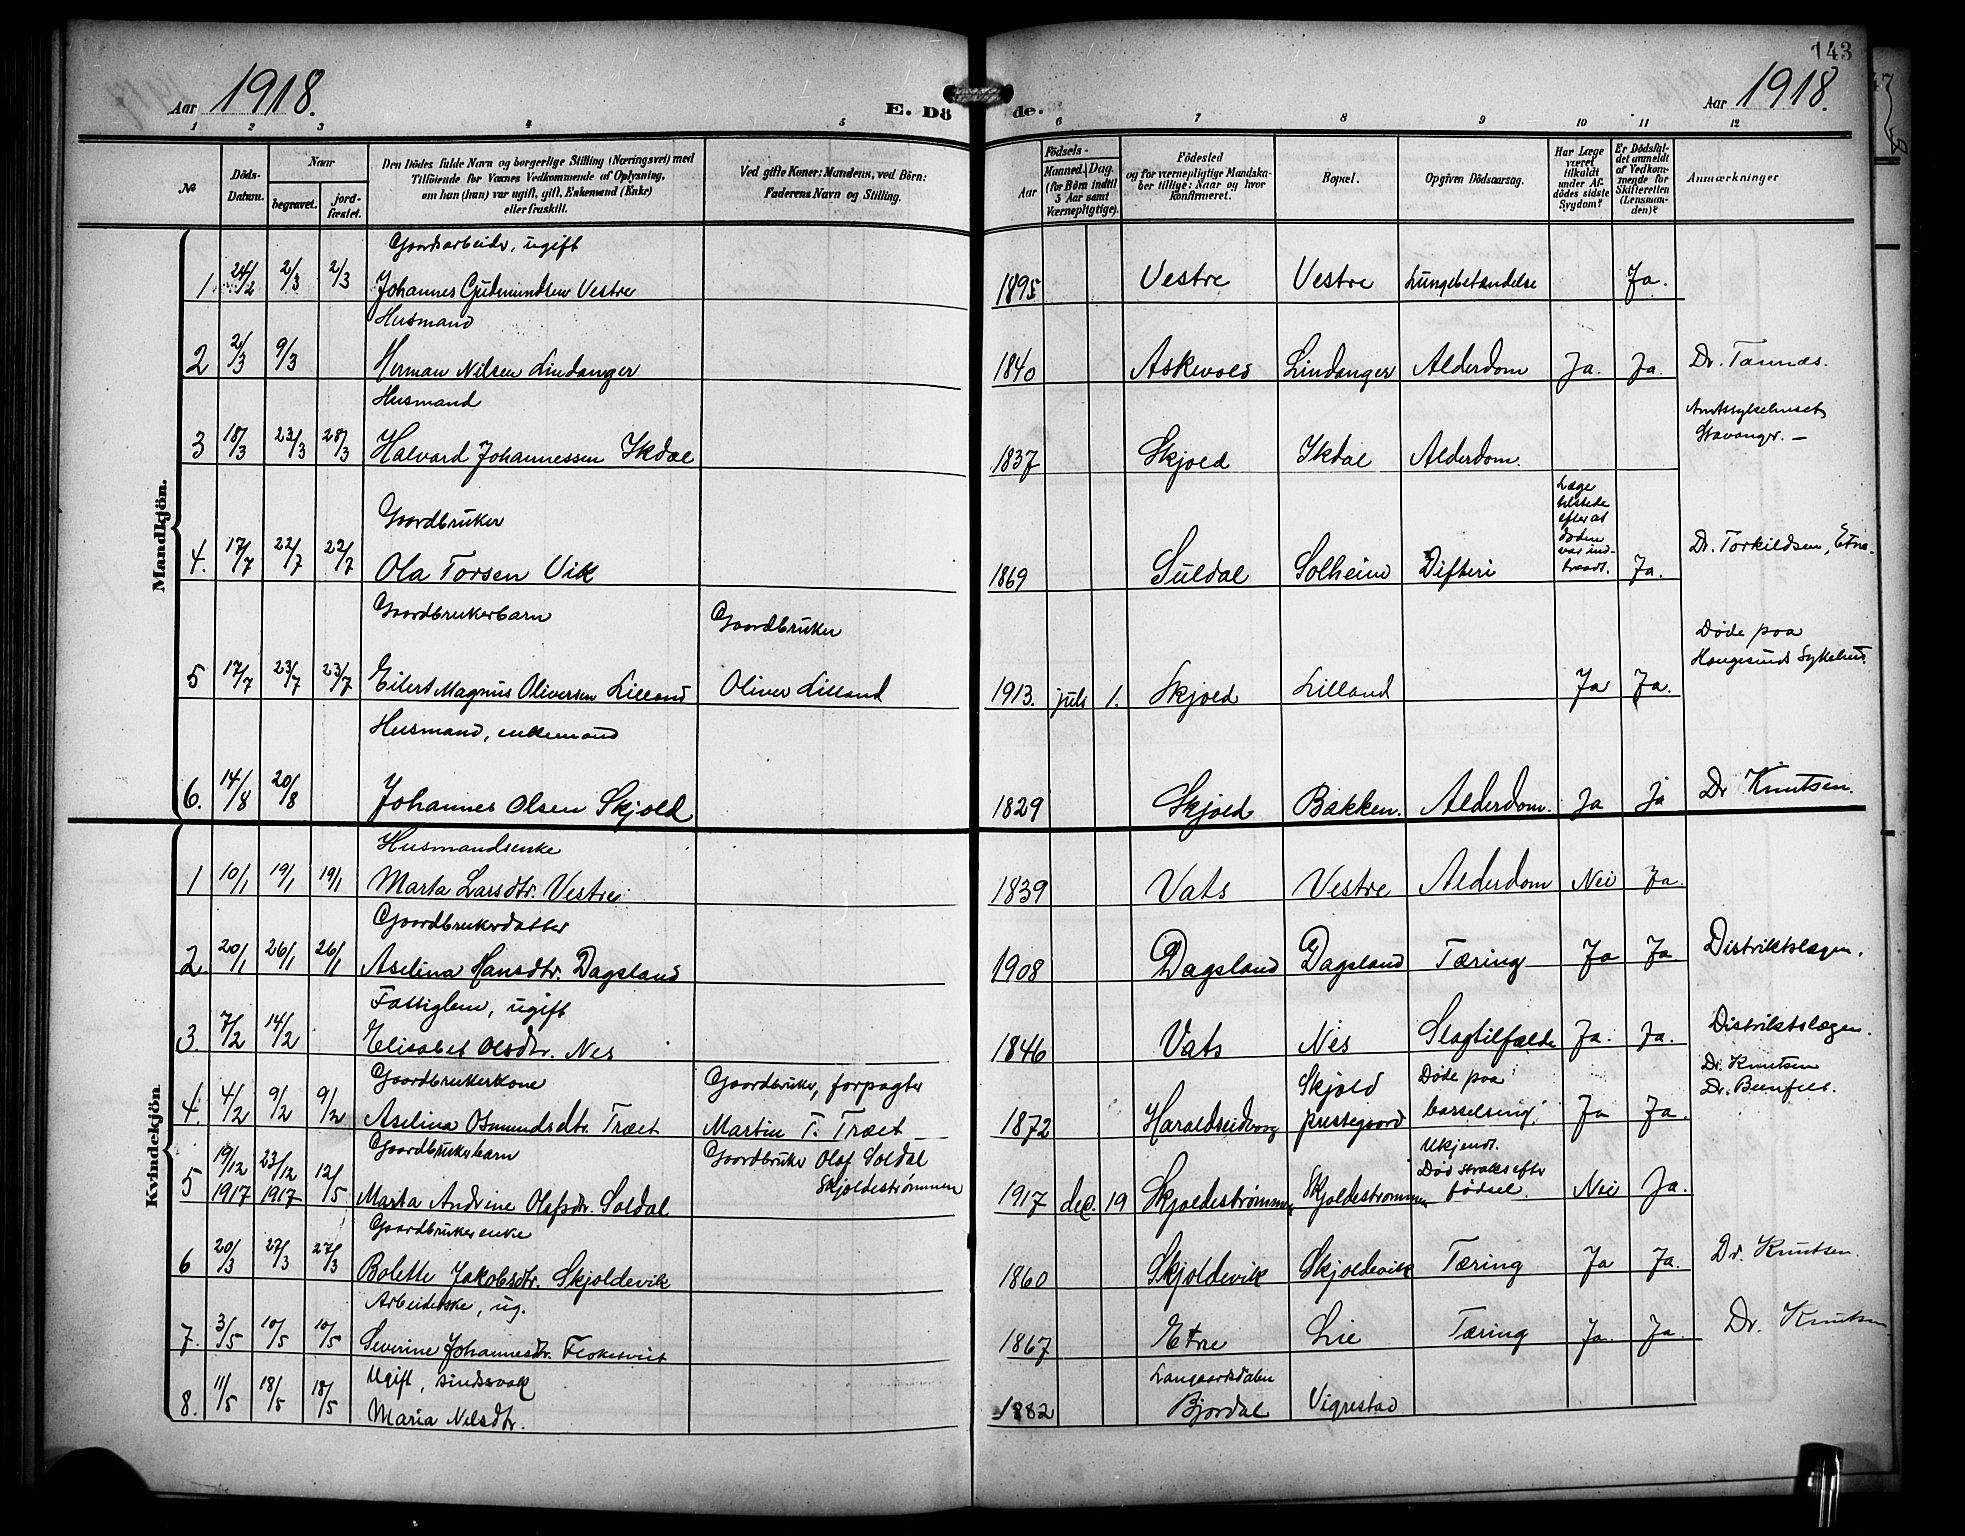 143
Aar 1918.
E. Dö
de.
Aar 1918.
1 2 3 4 5 6 7 8 9 10 11 12
№
Döds-
Datum.
Naar
begravet.
jord-
fæstet.
Den Dödes fulde Navn og borgerlige Stilling (Næringsvei) med
Tilföiende for Voxnes Vedkommende af Oplysning,
om han (hun) var ugift, gift, Enkemand (Enke)
eller fraskilt.
Ved gifte Koner: Mandens, ved Börn:
Faderens Navn og Stilling.
Födsels-
Aar
Maaned. Dag.
(for Börn indtil
5 Aar samt
Værnepligtige).
Födested
og for værnepligtige Mandska-
ber tillige: Naar og hvor
konfirmeret.
Bopæl.
Opgiven Dödsaarsag.
Har Læge
været
tilkaldt
under Af-
dödes sidste
Sygdom?
Er Dödsfal-
det anmeldt
af Vedkom-
mende for
Skifteretten
(Lensman-
den)?
Anmærkninger
Mandkjön.
Gaardsarbeider, ugift
1 24/2 2/3 2/3 Johannes Gudmundsen Vestre 1895 Vestre Vestre Lungebetændelse Ja.
Husmand
2 2/3 9/3 Herman Nilsen Lindanger 1840 Askvold Lindanger Alderdom Ja. Ja. Dr. Tannæs.
Husmand
Amtssykehuset
Stavanger. —
3 18/3 23/3 28/3 Halvard Johannessen Ikdal 1837 Skjold Ikdal Alderdom.
Gaardbruker
Læge
tilstede
efter at
døden
var ind-
traadt.
4. 17/7 22/7 22/7 Ola Torsen Vik 1869 Suldal Solheim Difteri Ja. Dr. Torkildsen, Etne.
Gaardbrukerbarn Gaardbruker
Døde paa
Haugesunds Sykehus.
5 17/7 23/7 23/7 Eilert Magnus Oliversen Lilland Oliver Lilland 1913. juli 1. Skjold Lilland Ja Ja.
Husmand, enkemand
6. 14/8 20/8 Johannes Olsen Skjold 1829 Skjold Bakken. Alderdom. Ja ja Dr Knutsen.
Kvindekjön
Husmandsenke
1 10/1 19/1 19/1 Marta Larsdtr. Vestre 1839 Vats Vestre Alderdom Nei Ja.
Gaardbrukerdatter
2. 20/1 26/1 26/1 Aselina Hansdtr. Dagsland 1908 Dagsland Dagsland Tæring Ja Ja. Distriktslægen.
Fattiglem, ugift
3. 7/2 14/2 Elisabet Olsdtr. Nes 1846 Vats Nes Slagtilfælde Ja. Ja. Distriktslægen.
Gaardbrukerkone Gaardbruker, forpagter Skjold Døde paa Dr. Knutsen
4. 4/2 9/2 9/2 Aselina Osmundsdtr. Træet Martin T. Træet 1872 Haraldseidvaag prestegaard barselseng. Ja Ja.
Gaardbrukerbarn Gaardbruker Olaf Soldal
Skjoldestrømmen
Ukjendt.
Død straks efter
fødsel.
5 19/12 1917 23/12 1917 12/5 Marta Andrine Olafsdtr. Soldal 1917 dec. 19 Skjoldestrømmen Skjoldestrømmen Nei Ja.
Gaardbrukerenke
6 20/3 27/3 27/3 Bolette Jakobsdtr. Skjoldevik 1860 Skjoldevik Skjoldevik Tæring Ja Ja. Dr. Knutsen.
Arbeiderske, ug.
7. 3/5 10/5 10/5 Severine Johannesdtr. 1867 Etne Lie Tæring Ja. Ja. Dr. Knutsen.
Ugift, sindssvak
Langaardsdalen
8. 11/5 18/5 18/5 Maria Nelsdtr. 1882 Bjordal Vigrestad